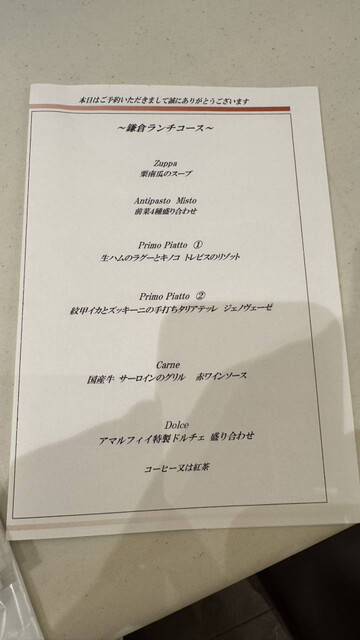 本日はご予約いただきまして誠にありがとうございます
～鎌倉ランチコース～
Zuppa
栗南瓜のスープ
Antipasto Misto
前菜4種盛り合わせ
Primo Piatto ①
生ハムのラグーとキノコ トレビスのリゾット
Primo Piatto ②
紋甲イカとズッキーニの手打ちタリアテッレ ジェノヴェーゼ
Carne
国産牛 サーロインのグリル 赤ワインソース
Dolce
アマルフィイ特製ドルチェ 盛り合わせ
コーヒー又は紅茶